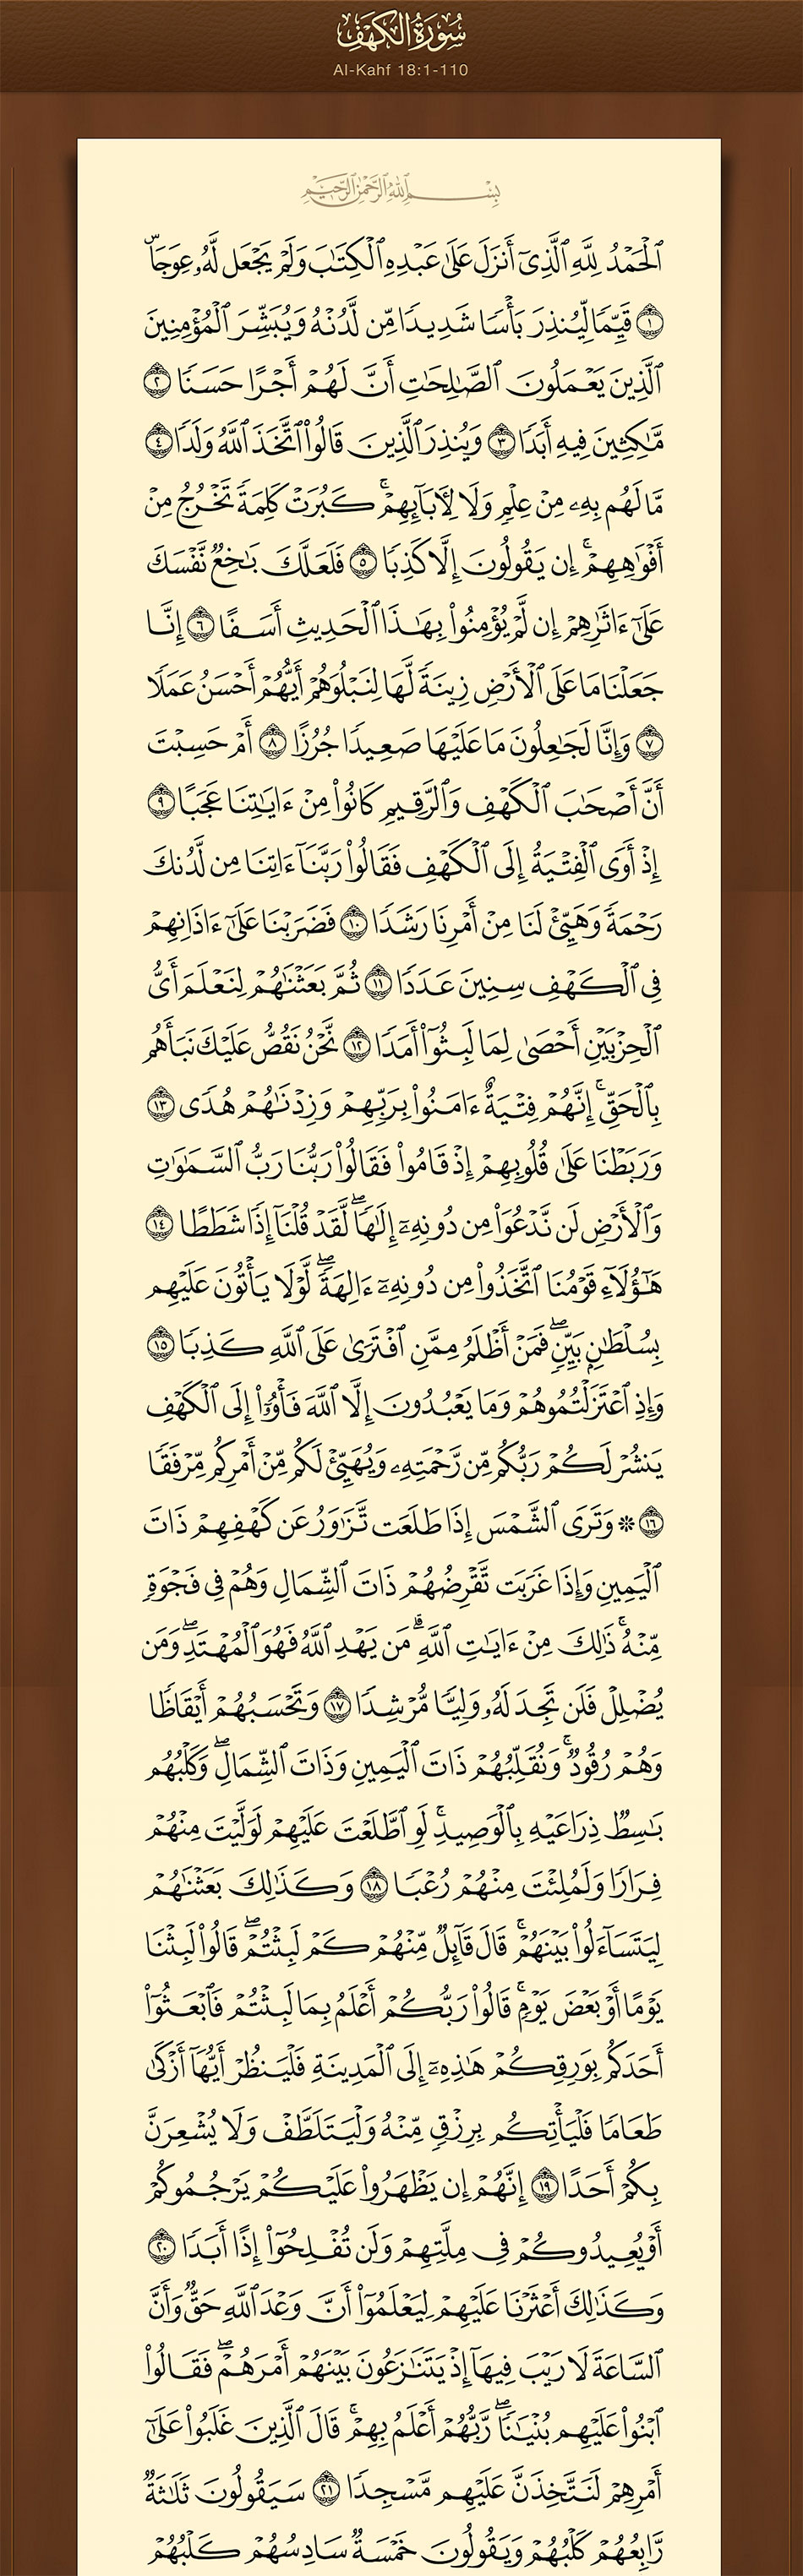 سُورَةُ الكَهْفِ
Al-Kahf 18:1-110
بِسْمِ ٱللَّهِ ٱلرَّحْمَٰنِ ٱلرَّحِيمِ
ٱلْحَمْدُ لِلَّهِ ٱلَّذِىٓ أَنزَلَ عَلَىٰ عَبْدِهِ ٱلْكِتَٰبَ وَلَمْ يَجْعَل لَّهُۥ عِوَجَاۜ
١ قَيِّمًا لِّيُنذِرَ بَأْسًا شَدِيدًا مِّن لَّدُنْهُ وَيُبَشِّرَ ٱلْمُؤْمِنِينَ
ٱلَّذِينَ يَعْمَلُونَ ٱلصَّٰلِحَٰتِ أَنَّ لَهُمْ أَجْرًا حَسَنًا ٢
مَّٰكِثِينَ فِيهِ أَبَدًا ٣ وَيُنذِرَ ٱلَّذِينَ قَالُوا۟ ٱتَّخَذَ ٱللَّهُ وَلَدًا ٤
مَّا لَهُم بِهِۦ مِنْ عِلْمٍ وَلَا لِأَبَآئِهِمْ ۚ كَبُرَتْ كَلِمَةً تَخْرُجُ مِنْ
أَفْوَٰهِهِمْ ۚ إِن يَقُولُونَ إِلَّا كَذِبًا ٥ فَلَعَلَّكَ بَٰخِعٌ نَّفْسَكَ
عَلَىٰٓ ءَاثَٰرِهِمْ إِن لَّمْ يُؤْمِنُوا۟ بِهَٰذَا ٱلْحَدِيثِ أَسَفًا ٦ إِنَّا
جَعَلْنَا مَا عَلَى ٱلْأَرْضِ زِينَةً لَّهَا لِنَبْلُوَهُمْ أَيُّهُمْ أَحْسَنُ عَمَلًا
٧ وَإِنَّا لَجَٰعِلُونَ مَا عَلَيْهَا صَعِيدًا جُرُزًا ٨ أَمْ حَسِبْتَ
أَنَّ أَصْحَٰبَ ٱلْكَهْفِ وَٱلرَّقِيمِ كَانُوا۟ مِنْ ءَايَٰتِنَا عَجَبًا ٩
إِذْ أَوَى ٱلْفِتْيَةُ إِلَى ٱلْكَهْفِ فَقَالُوا۟ رَبَّنَآ ءَاتِنَا مِن لَّدُنكَ
رَحْمَةً وَهَيِّئْ لَنَا مِنْ أَمْرِنَا رَشَدًا ١٠ فَضَرَبْنَا عَلَىٰٓ ءَاذَانِهِمْ
فِى ٱلْكَهْفِ سِنِينَ عَدَدًا ١١ ثُمَّ بَعَثْنَٰهُمْ لِنَعْلَمَ أَىُّ
ٱلْحِزْبَيْنِ أَحْصَىٰ لِمَا لَبِثُوٓا۟ أَمَدًا ١٢ نَّحْنُ نَقُصُّ عَلَيْكَ نَبَأَهُم
بِٱلْحَقِّ ۚ إِنَّهُمْ فِتْيَةٌ ءَامَنُوا۟ بِرَبِّهِمْ وَزِدْنَٰهُمْ هُدًى ١٣
وَرَبَطْنَا عَلَىٰ قُلُوبِهِمْ إِذْ قَامُوا۟ فَقَالُوا۟ رَبُّنَا رَبُّ ٱلسَّمَٰوَٰتِ
وَٱلْأَرْضِ لَن نَّدْعُوَا۟ مِن دُونِهِۦٓ إِلَٰهًا ۖ لَّقَدْ قُلْنَآ إِذًا شَطَطًا ١٤
هَٰٓؤُلَآءِ قَوْمُنَا ٱتَّخَذُوا۟ مِن دُونِهِۦٓ ءَالِهَةً ۖ لَّوْلَا يَأْتُونَ عَلَيْهِم
بِسُلْطَٰنٍۭ بَيِّنٍ ۖ فَمَنْ أَظْلَمُ مِمَّنِ ٱفْتَرَىٰ عَلَى ٱللَّهِ كَذِبًا ١٥
وَإِذِ ٱعْتَزَلْتُمُوهُمْ وَمَا يَعْبُدُونَ إِلَّا ٱللَّهَ فَأْوُۥٓا۟ إِلَى ٱلْكَهْفِ
يَنشُرْ لَكُمْ رَبُّكُم مِّن رَّحْمَتِهِۦ وَيُهَيِّئْ لَكُم مِّنْ أَمْرِكُم مِّرْفَقًا
١٦ ۞ وَتَرَى ٱلشَّمْسَ إِذَا طَلَعَت تَّزَٰوَرُ عَن كَهْفِهِمْ ذَاتَ
ٱلْيَمِينِ وَإِذَا غَرَبَت تَّقْرِضُهُمْ ذَاتَ ٱلشِّمَالِ وَهُمْ فِى فَجْوَةٍ
مِّنْهُ ۚ ذَٰلِكَ مِنْ ءَايَٰتِ ٱللَّهِ ۗ مَن يَهْدِ ٱللَّهُ فَهُوَ ٱلْمُهْتَدِ ۖ وَمَن
يُضْلِلْ فَلَن تَجِدَ لَهُۥ وَلِيًّا مُّرْشِدًا ١٧ وَتَحْسَبُهُمْ أَيْقَاظًا
وَهُمْ رُقُودٌ ۚ وَنُقَلِّبُهُمْ ذَاتَ ٱلْيَمِينِ وَذَاتَ ٱلشِّمَالِ ۖ وَكَلْبُهُم
بَٰسِطٌ ذِرَاعَيْهِ بِٱلْوَصِيدِ ۚ لَوِ ٱطَّلَعْتَ عَلَيْهِمْ لَوَلَّيْتَ مِنْهُمْ
فِرَارًا وَلَمُلِئْتَ مِنْهُمْ رُعْبًا ١٨ وَكَذَٰلِكَ بَعَثْنَٰهُمْ
لِيَتَسَآءَلُوا۟ بَيْنَهُمْ ۚ قَالَ قَآئِلٌ مِّنْهُمْ كَمْ لَبِثْتُمْ ۖ قَالُوا۟ لَبِثْنَا
يَوْمًا أَوْ بَعْضَ يَوْمٍ ۚ قَالُوا۟ رَبُّكُمْ أَعْلَمُ بِمَا لَبِثْتُمْ فَٱبْعَثُوٓا۟
أَحَدَكُم بِوَرِقِكُمْ هَٰذِهِۦٓ إِلَى ٱلْمَدِينَةِ فَلْيَنظُرْ أَيُّهَآ أَزْكَىٰ
طَعَامًا فَلْيَأْتِكُم بِرِزْقٍ مِّنْهُ وَلْيَتَلَطَّفْ وَلَا يُشْعِرَنَّ
بِكُمْ أَحَدًا ١٩ إِنَّهُمْ إِن يَظْهَرُوا۟ عَلَيْكُمْ يَرْجُمُوكُمْ
أَوْ يُعِيدُوكُمْ فِى مِلَّتِهِمْ وَلَن تُفْلِحُوٓا۟ إِذًا أَبَدًا ٢٠
وَكَذَٰلِكَ أَعْثَرْنَا عَلَيْهِمْ لِيَعْلَمُوٓا۟ أَنَّ وَعْدَ ٱللَّهِ حَقٌّ وَأَنَّ
ٱلسَّاعَةَ لَا رَيْبَ فِيهَآ إِذْ يَتَنَٰزَعُونَ بَيْنَهُمْ أَمْرَهُمْ ۖ فَقَالُوا۟
ٱبْنُوا۟ عَلَيْهِم بُنْيَٰنًا ۖ رَّبُّهُمْ أَعْلَمُ بِهِمْ ۚ قَالَ ٱلَّذِينَ غَلَبُوا۟ عَلَىٰٓ
أَمْرِهِمْ لَنَتَّخِذَنَّ عَلَيْهِم مَّسْجِدًا ٢١ سَيَقُولُونَ ثَلَٰثَةٌ
رَّابِعُهُمْ كَلْبُهُمْ وَيَقُولُونَ خَمْسَةٌ سَادِسُهُمْ كَلْبُهُمْ